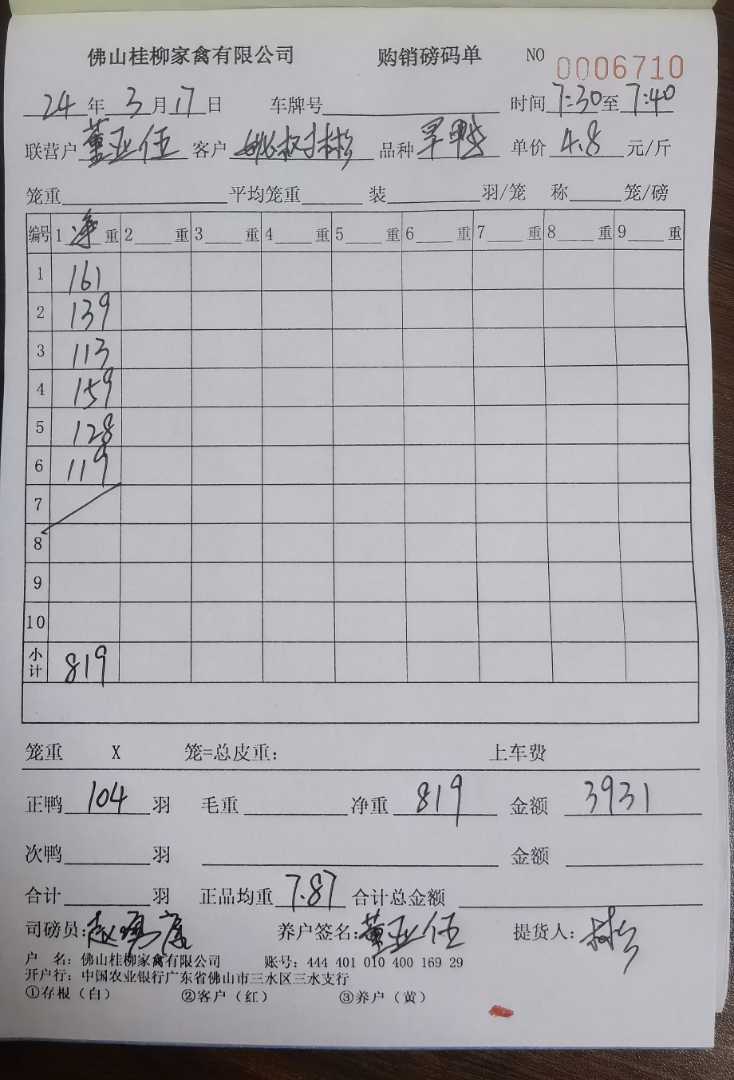 佛山桂柳家禽有限公司 购销磅码单 NO 0006710
24年3月17日 车牌号 时间7:30至7:40
联营户董亚伍 客户 品种旱鸭 单价4.8元/斤
笼重 平均笼重 装 羽/笼 称 笼/磅
编号 1净重 2 重 3 重 4 重 5 重 6 重 7 重 8 重 9 重
1 161
2 139
3 113
4 159
5 128
6 119
7
8
9
10
小计 819
笼重 X 笼=总皮重: 上车费
正鸭104羽 毛重 净重819 金额3931
次鸭 羽 金额
合计 羽 正品均重7.87 合计总金额
司磅员: 养户签名:董亚伍 提货人:
户 名: 佛山桂柳家禽有限公司 账号: 444 401 010 400 169 29
开户行: 中国农业银行广东省佛山市三水区三水支行
①存根(白) ②客户(红) ③养户(黄)